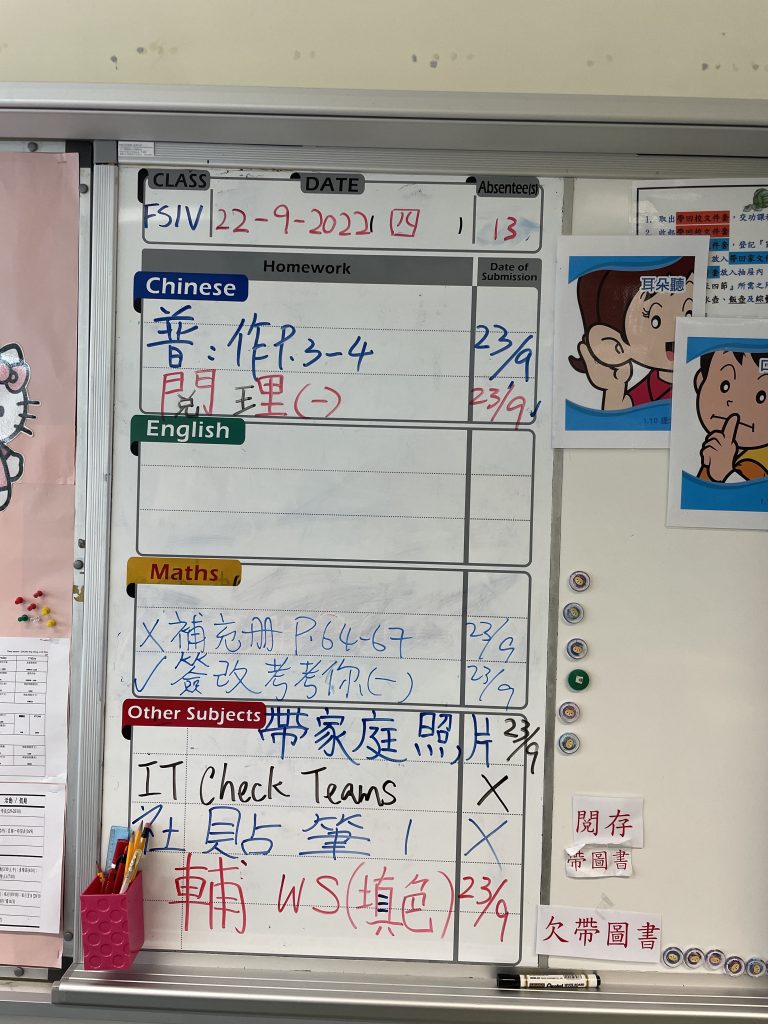 CLASS DATE Absentee(s)
FSIV 22-9-2022 (四) 13
Homework Date of Submission
Chinese
普:作P.3-4 23/9
閱 理(一) 23/9
English
Maths
X 補充册 P.64-67 23/9
✓ 簽改考考你(一) 23/9
Other Subjects
帶家庭照片 23/9
IT Check Teams X
社 貼 筆 1 X
輔 WS(填色) 23/9
1. 取出帶回校文件套,交功課
耳朵聽
1.10
閱存
帶圖書
欠帶圖書
Pentel